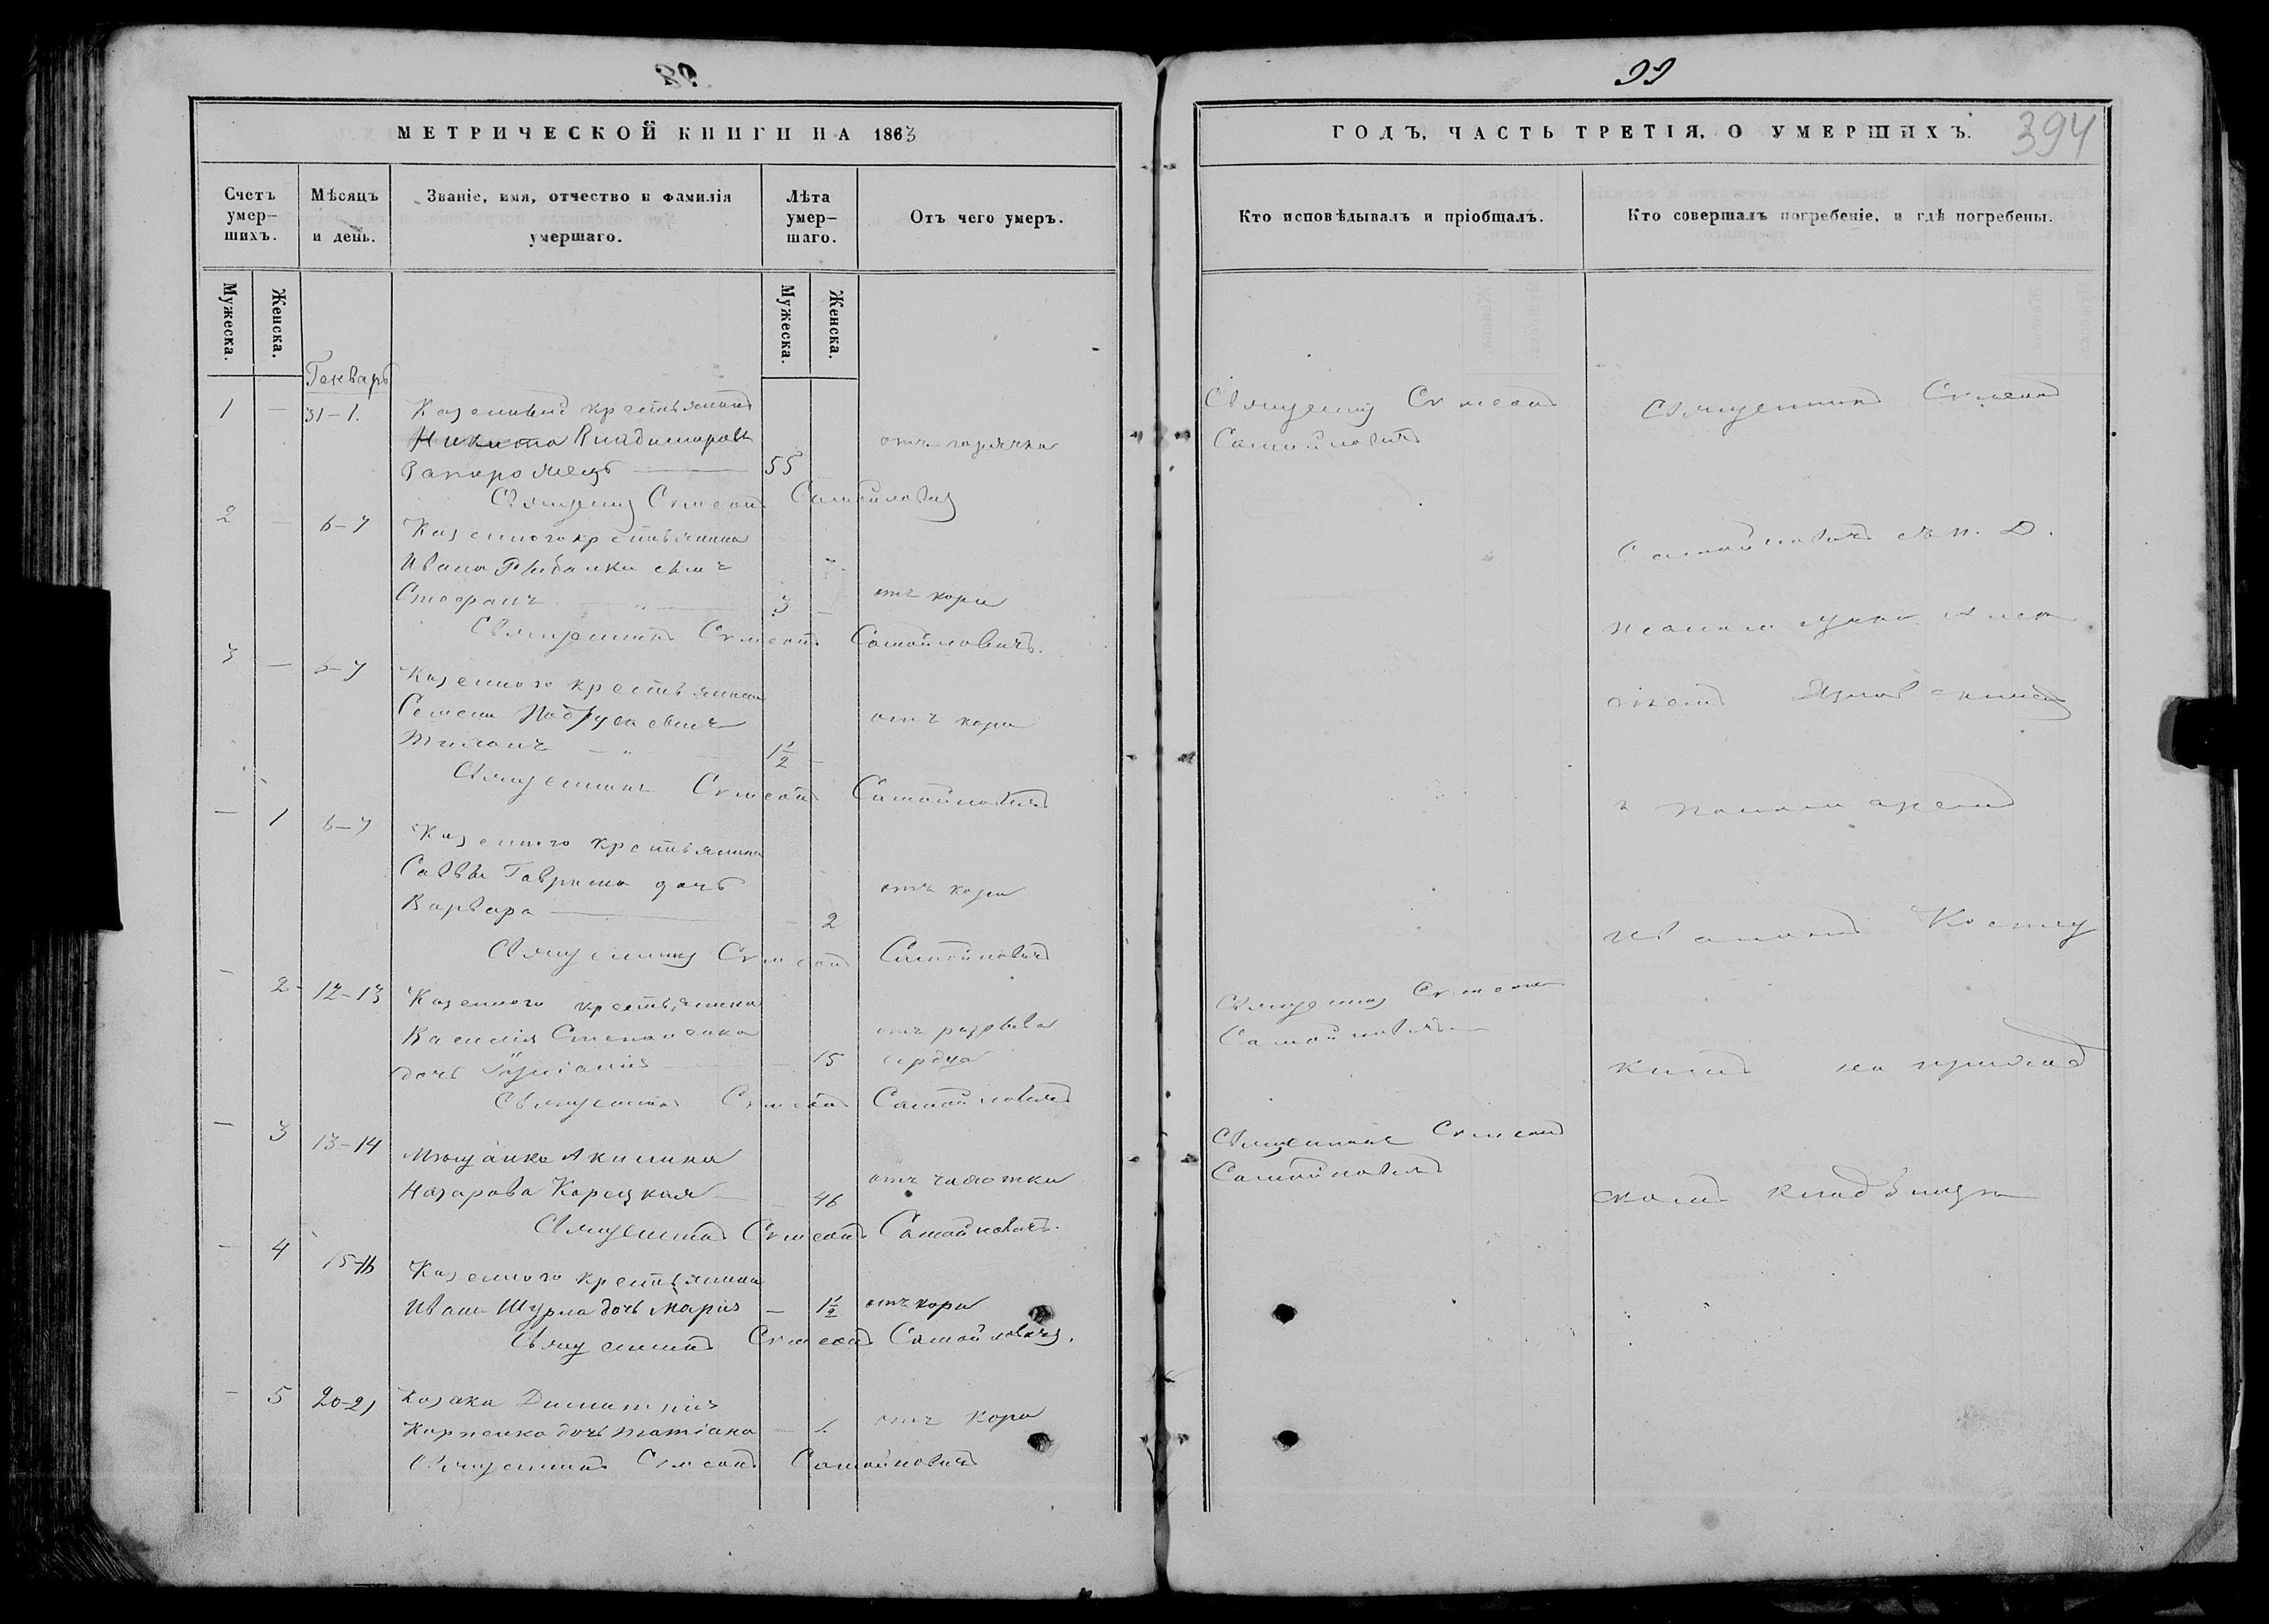 МЕТРИЧЕСКОЙ КНИГИ НА 1863
Счетъ умер-шихъ.
Мѣсяцъ и день.
Званіе, имя, отчество и фамилія умершаго.
Лѣта умер-шаго.
Отъ чего умеръ.
Мужеска.
Женска.
Мужеска.
Женска.
Генварь
1 — 31-1. Казенный крестьянинъ
Никита Владимировъ отъ горячки
Запорожецъ 55
Священник Симеонъ Самойлович
2 — 6-7 Казенного крестьянина
Ивана Рыбалки сынъ
Стефанъ 3 — отъ кори
Священникъ Симеонъ Самойловичъ.
3 — 6-7 Казенного крестьянина
Семена сынъ отъ кори
1 1/2 —
Священникъ Симеонъ Самойловичъ
— 1 6-7 Казенного крестьянина
Саввы Гавриша дочь отъ кори
Варвара — 2
Священник Симеонъ Самойловичъ
— 2 12-13 Казенного крестьянина
Василія Степаненка отъ разрыва
дочь — 15 сердца
Священникъ Симеонъ Самойловичъ
— 3 13-14 Мѣщанка Акилина
Назарова Корецкая — 46 отъ чахотки
Священникъ Симеонъ Самойловичъ.
— 4 15-16 Казенного крестьянина
Ивана Шурла дочь Марія — 1 1/2 отъ кори
Священникъ Симеонъ Самойлович.
— 5 20-21 Козака Димитрія
Карпенка дочь Татіана — отъ кори
Священникъ Симеонъ Самойловичъ
99
394
ГОДЪ, ЧАСТЬ ТРЕТІЯ, О УМЕРШИХЪ.
Кто исповѣдывалъ и пріобщалъ.
Кто совершалъ погребеніе, и гдѣ погребены.
Священник Симеонъ
Самойловичъ
Священник Симеонъ
Самойловичъ
Священникъ Симеонъ
Самойловичъ
Священникъ Симеонъ
Самойловичъ
и пономаремъ
Иваномъ
на приход
скомъ кладбищѣ